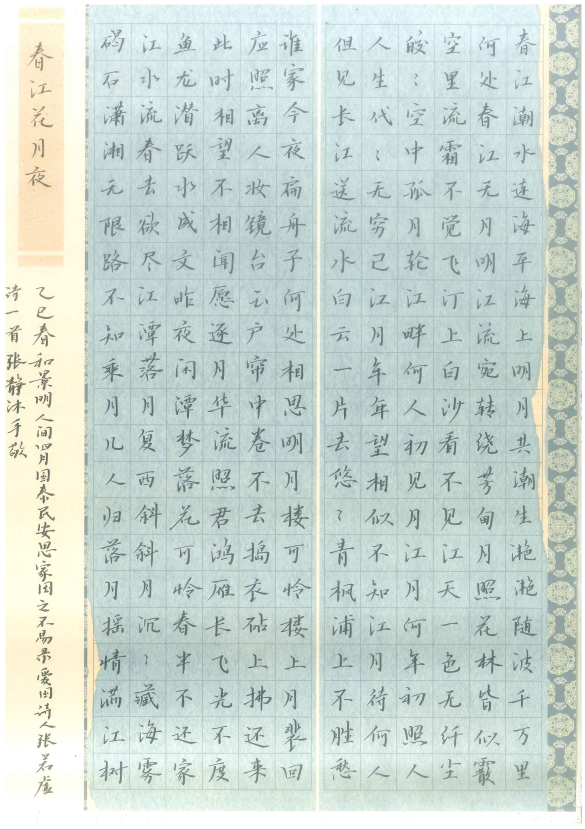 春江潮水连海平海上明月共潮生滟滟随波千万里
何处春江无月明江流宛转绕芳甸月照花林皆似霰
空里流霜不觉飞汀上白沙看不见江天一色无纤尘
皎〻空中孤月轮江畔何人初见月江月何年初照人
人生代〻无穷已江月年年望相似不知江月待何人
但见长江送流水白云一片去悠〻青枫浦上不胜愁
谁家今夜扁舟子何处相思明月楼可怜楼上月裴回
应照离人妆镜台玉户帘中卷不去捣衣砧上拂还来
此时相望不相闻愿逐月华流照君鸿雁长飞光不度
鱼龙潜跃水成文昨夜闲潭梦落花可怜春半不还家
江水流春去欲尽江潭落月复西斜斜月沉〻藏海雾
碣石潇湘无限路不知乘月几人归落月摇情满江树
春江花月夜
乙巳春和景明人间四月国泰民安思家国之不易录爱国诗人张若虚
诗一首张静沐手敬